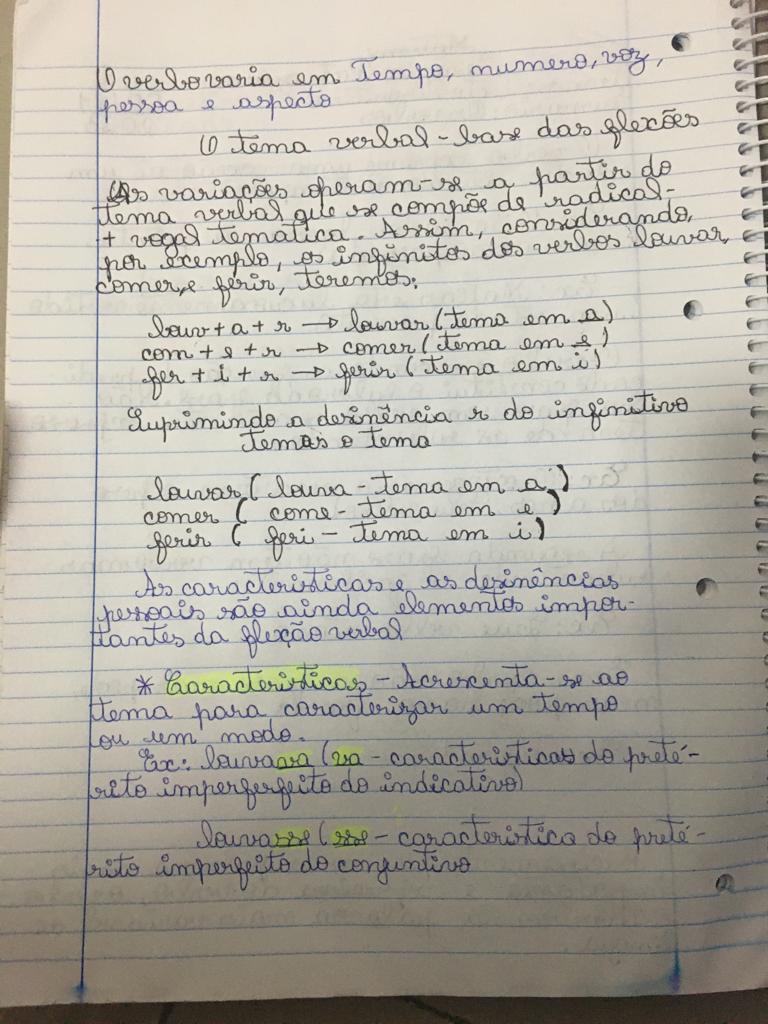 O verbo varia em Tempo, numero, voz,
pessoa e aspecto
O tema verbal - base das flexões
As variações operam-se a partir do
tema verbal que se compõe de radical-
+ vogal temática. Assim, considerando,
por exemplo, os infinitos dos verbos louvar,
comer, e ferir, teremos:
louv + a + r → louvar (tema em a)
com + e + r → comer (tema em e)
fer + i + r → ferir (tema em i)
Suprimindo a desinência r do infinitivo
temos o tema
louvar ( louva - tema em a )
comer ( come - tema em e )
ferir ( feri - tema em i )
As caracteristicas e as desinências
pessoais são ainda elementos impor-
tantes da flexão verbal
* Caracteristicas - Acrescenta-se ao
tema para caracterizar um tempo
ou um modo.
Ex: louvaava (va - caracteristicas do preté-
rito imperferfeito do indicativo)
louvasse (sse - caracteristica do preté-
rito imperfeito do conjuntivo